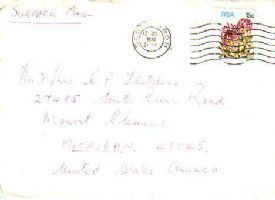 SURFACE MAIL
RSA
Mr & Mrs
27485 South River Road,
Mount Clemens
MICHIGAN, 48045.
United States America